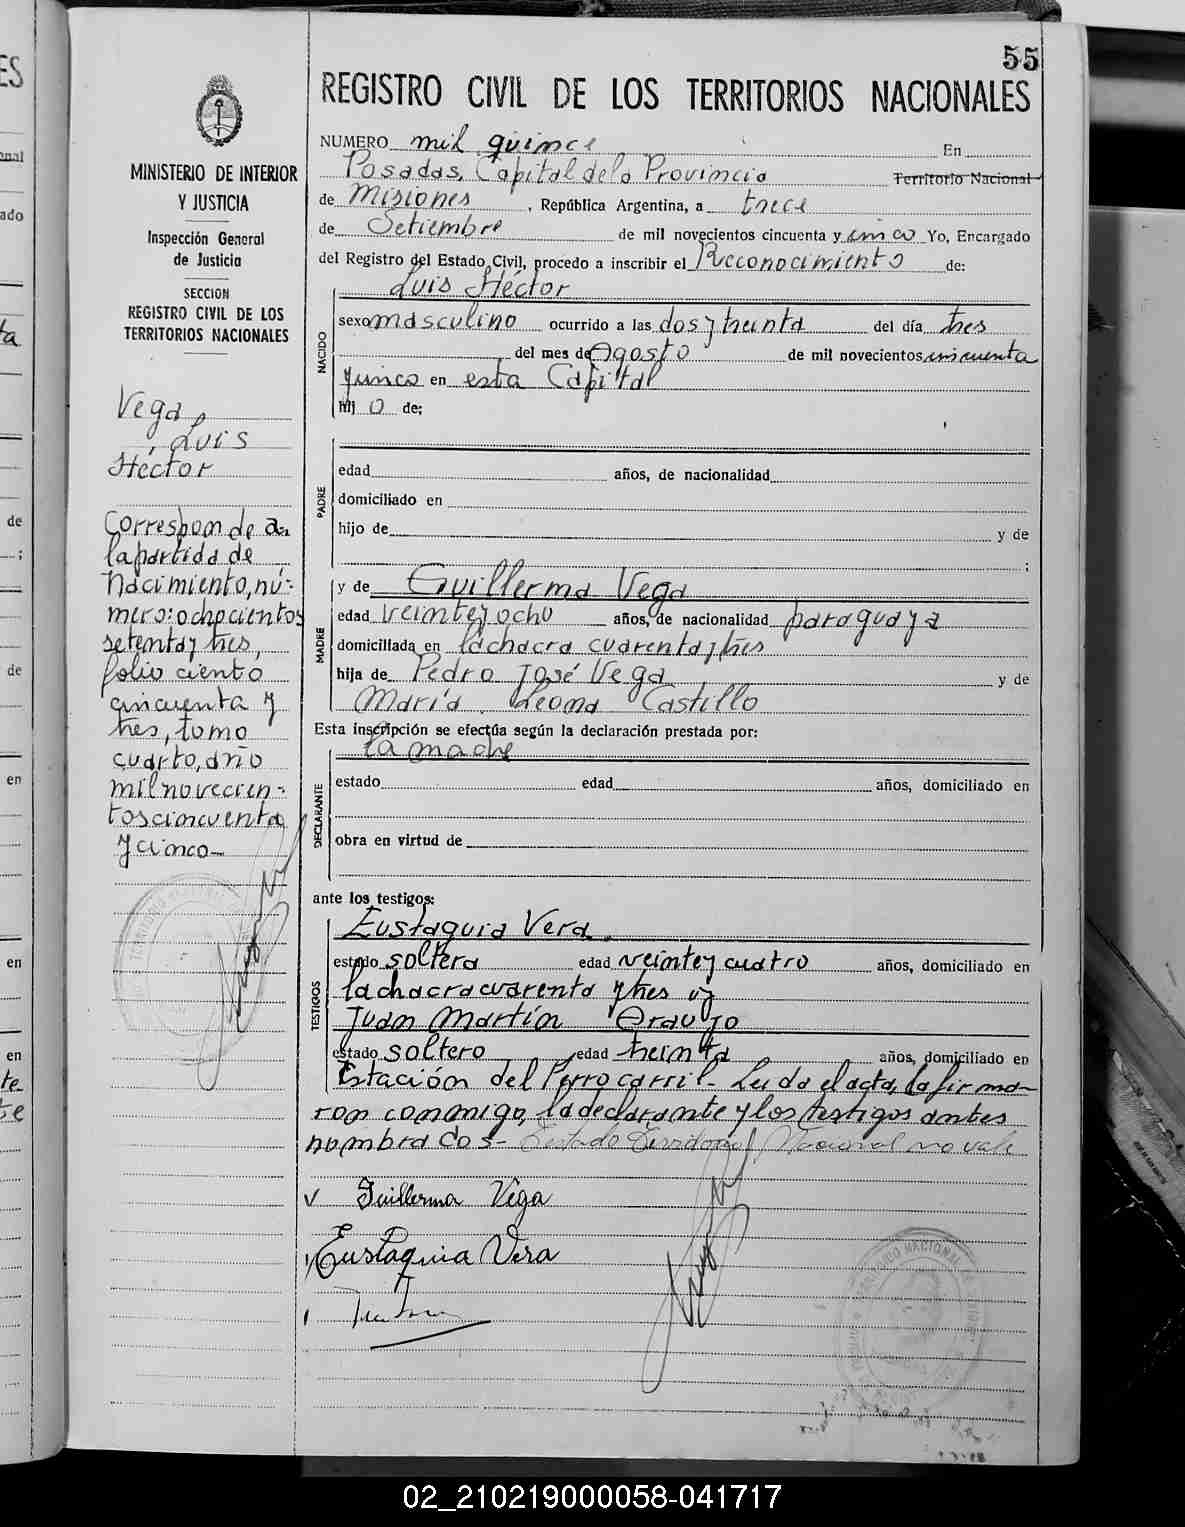 55
REGISTRO CIVIL DE LOS TERRITORIOS NACIONALES
MINISTERIO DE INTERIOR
Y JUSTICIA
Inspección General
de Justicia
SECCION
REGISTRO CIVIL DE LOS
TERRITORIOS NACIONALES
Vega,
Luis
Héctor
Correspon de a
la partida de
Nacimiento, nú-
mero: ochocientos
setenta y tres,
folio ciento
cincuenta y
tres, tomo
cuarto, año
mil novecien-
tos cincuenta
y cinco-
NUMERO mil quince En
Posadas, Capital de la Provincia Territorio Nacional
de Misiones, República Argentina, a trece
de Setiembre de mil novecientos cincuenta y cinco Yo, Encargado
del Registro del Estado Civil, procedo a inscribir el Reconocimiento de:
Luis Héctor
NACIDO
sexo masculino ocurrido a las dos y treinta del día tres
del mes de Agosto de mil novecientos cincuenta
y cinco en esta Capital
hij o de:
PADRE
edad años, de nacionalidad
domiciliado en
hijo de y de
;
MADRE
y de Guillerma Vega
edad veinte y ocho años, de nacionalidad paraguaya
domiciliada en la chacra cuarenta y tres
hija de Pedro José Vega y de
María Leona Castillo
Esta inscripción se efectúa según la declaración prestada por:
la madre
DECLARANTE
estado edad años, domiciliado en
obra en virtud de
ante los testigos:
TESTIGOS
Eustaquia Vera.
estado soltera edad veinte y cuatro años, domiciliado en
la chacra cuarenta y tres y
Juan Martín Araujo
estado soltero edad treinta años, domiciliado en
Estación del Ferrocarril- Leida el acta, la firma-
ron conmigo, la declarante y los testigos antes
nombrados- Testado Territorio Nacional no vale
Guillerma Vega
Eustaquia Vera
02_210219000058-041717